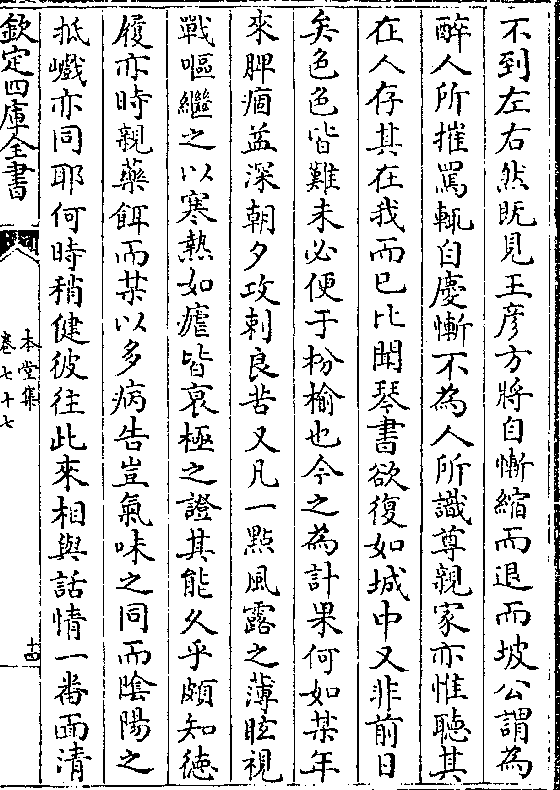 不到左右然既見王彦方將自慚縮而退而坡公謂為
醉人所摧罵輒自慶慚不為人所識尊親家亦惟聽其
在人存其在我而已比聞琴書欲復如城中又非前日
矣色色皆難未必便于枌榆也今之為計果何如某年
來脾痼益深朝夕攻刺良苦又凡一點風露之薄眩視
戰嘔繼之以寒熱如瘧皆衰極之證其能久乎頗知徳
履亦時親藥餌而某以多病告豈氣味之同而陰陽之
抵巇亦同耶何時稍健彼往此來相與話情一番面清
欽定四庫全書
本堂集
卷七十七
十四